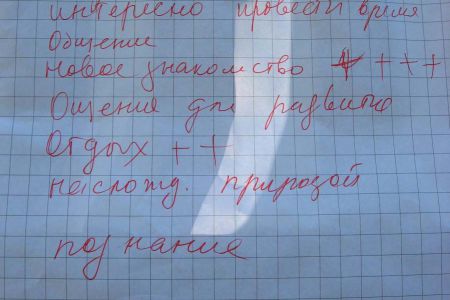 интересно провести время
Общение
новое знакомство + + + +
Ощения для развития
Отдых + +
насложд. природой
познание